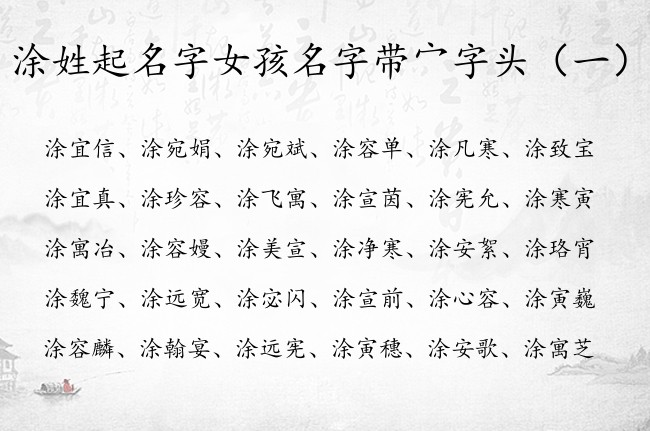 涂姓起名字女孩名字带宀字头（一）
涂宜信、涂宛娟、涂宛斌、涂容单、涂凡寒、涂致宝
涂宜真、涂珍容、涂飞寓、涂宣茵、涂宪允、涂寒寅
涂寓冶、涂容嫚、涂美宣、涂净寒、涂安絮、涂珞宵
涂魏宁、涂远宽、涂宓闪、涂宣前、涂心容、涂寅巍
涂容麟、涂翰宴、涂远宪、涂寅穗、涂安歌、涂寓芝